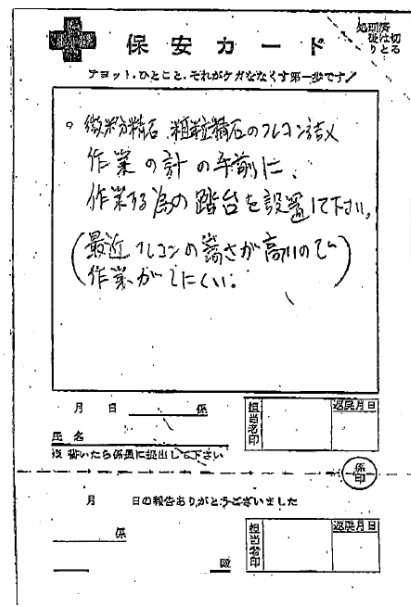 処理済後は切りとる
保安カード
チョット、ひとこと、それがケガをなくす第一歩です！
。微粉精石 粗粒精石のフレコン詰メ
作業の計の手前に、
作業する為の踏台を設置して下さい。
(最近フレコンの嵩さが高いので
作業がしにくい。)
月 日 係
氏名
※ 書いたら係員に提出して下さい
担当者印 返戻月日
係印
月 日の報告ありがとうございました
係
殿
担当者印 返戻月日